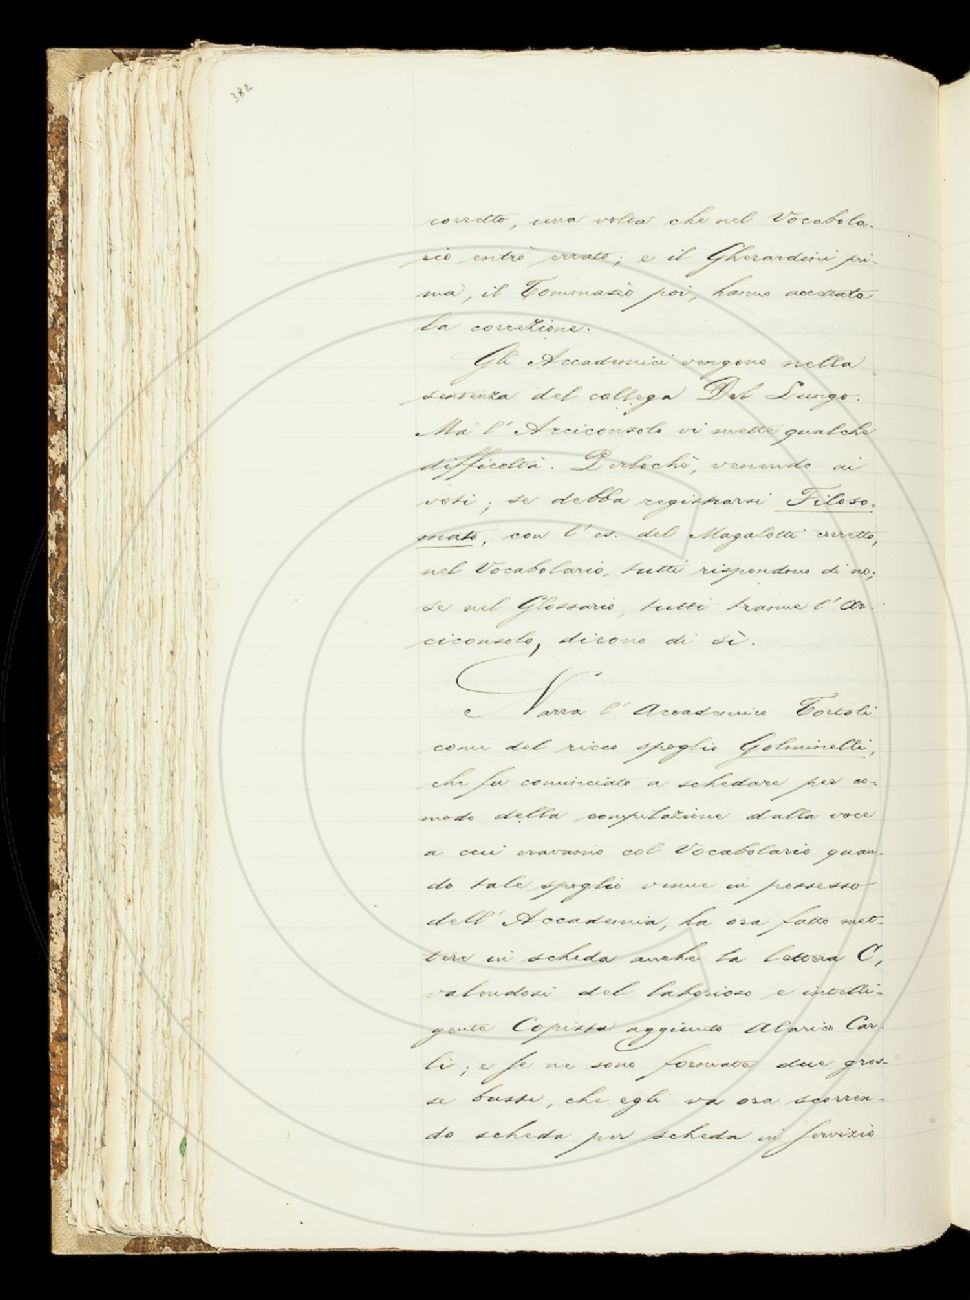 382
corretto, una volta che nel Vocabola-
rio entrò errato; e il Gherardini pri-
ma, il Tommasèo poi, hanno accettata
la correzione.
Gli Accademici vengono nella
sentenza del collega Del Lungo.
Ma l' Arciconsolo vi mette qualche
difficoltà. Perlochè, venendo ai
voti; se debba registrarsi Filoso-
mato, con l' es. del Magalotti corretto,
nel Vocabolario, tutti rispondono di no;
se nel Glossario, tutti tranne l' Ar-
ciconsolo, dicono di sì.
Narra l' Accademico Tortoli
come del ricco spoglio Golminelli,
che fu cominciato a schedare per co-
modo della compilazione dalla voce
a cui eravamo col Vocabolario quan-
do tale spoglio venne in possesso
dell' Accademia, ha ora fatto met-
tere in scheda anche la lettera C,
valendosi del laborioso e intelli-
gente Copista aggiunto Alarico Car-
li; e se ne sono formate due gros-
se buste, che egli va ora scorren-
do scheda per scheda in servizio